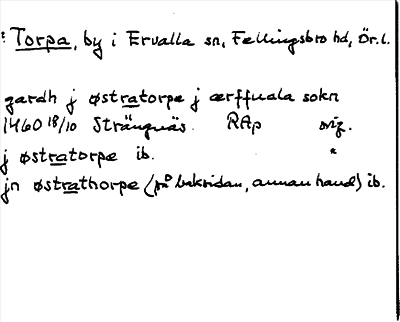 : Torpa, by i Ervalla sn, Fellingsbro hd, Ör.l.
gardh j østratorpe j ærffuala sokn
1460 18/10 Strängnäs. RAp orig.
j østratorpe ib. "
jn østrathorpe (på baksidan, annan hand) ib.